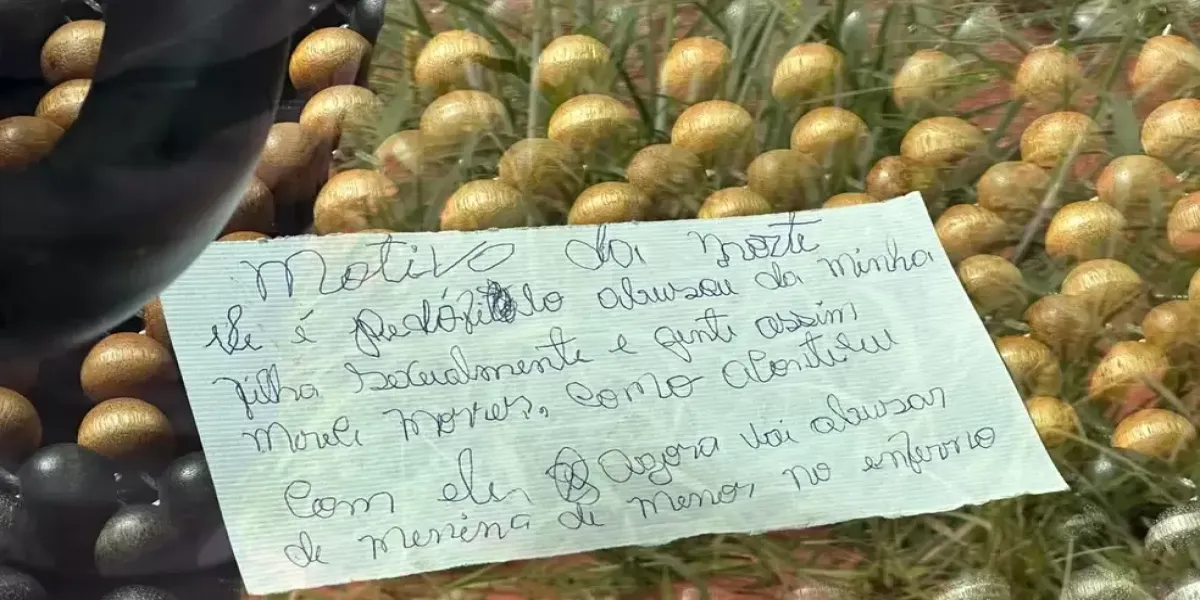 Motivo da morte
Ele é pedófilo abusou da minha
filha sexualmente e gente assim
morrer, como aconteceu
com ele, Agora vai abusar
de menina de menor no enferno